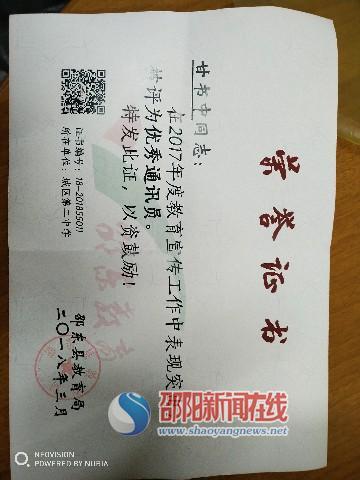 荣誉证书
甘书中同志：
在2017年度教育宣传工作中表现突
被评为优秀通讯员。
特发此证，以资鼓励！
证书编号：18-201855011
所在单位：城区第二中学
邵东县教育局
二〇一八年三月
邵东教育
邵阳新闻在线
www.shaoyangnews.net
NEOVISION
POWERED BY NUBIA